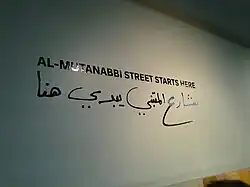 AL-MUTANABBI STREET STARTS HERE
شارع المتنبي يبدي هنا